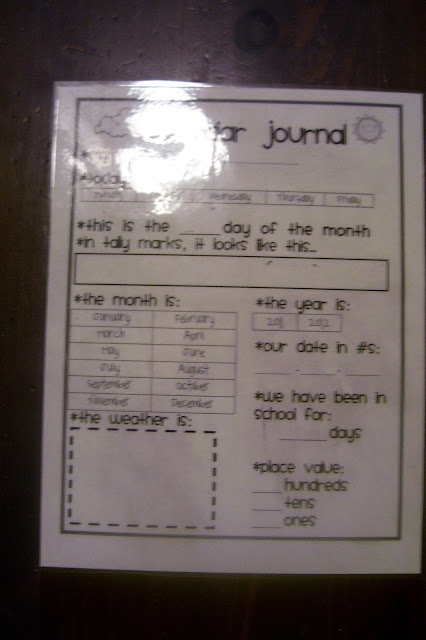 journal
*today
Monday Wednesday Thursday Friday
*this is the ____ day of the month
*in tally marks, it looks like this...
*the month is:
January February
March April
May June
July August
September October
November December
*the weather is:
*the year is:
2011 2012
*our date in #s:
____ - ____ - ____
*we have been in
school for:
____ days
*place value:
____ hundreds
____ tens
____ ones